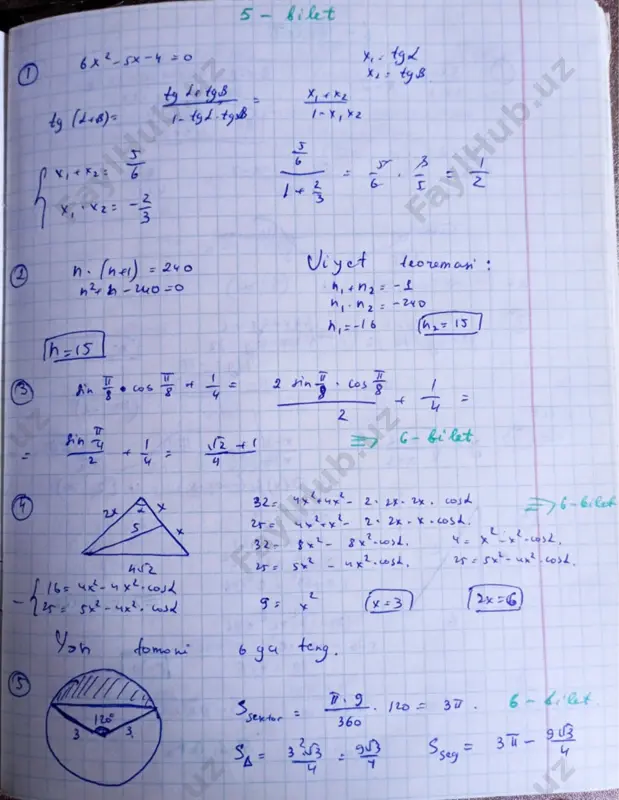 5 - bilet
① 6x² - 5x - 4 = 0
x₁ = tgα
x₂ = tgβ
tg(α+β) = (tgα + tgβ)/(1 - tgα·tgβ) = (x₁ + x₂)/(1 - x₁x₂)
{ x₁ + x₂ = 5/6
x₁ · x₂ = -2/3
(5/6)/(1 + 2/3) = 5/6 · 3/5 = 1/2
② n · (n+1) = 240
n² + n - 240 = 0
n = 15
Viyet teoremasi :
n₁ + n₂ = -1
n₁ · n₂ = -240
n₁ = -16 n₂ = 15
③ sin π/8 · cos π/8 + 1/4 = (2 sin π/8 · cos π/8)/2 + 1/4 =
= (sin π/4)/2 + 1/4 = (√2 + 1)/4 ⇒ 6 - bilet
④ 2x α x
5 x
4√2
32 = 4x² + 4x² - 2 · 2x · 2x · cosα ⇒ 6 - bilet
25 = 4x² + x² - 2 · 2x · x · cosα
32 = 8x² - 8x² · cosα. 4 = x² - x² · cosα.
25 = 5x² - 4x² · cosα. 25 = 5x² - 4x² cosα.
- { 16 = 4x² - 4x² · cosα
25 = 5x² - 4x² · cosα
9 = x² x = 3 2x = 6
Yon tomoni 6 ga teng.
⑤ 120° 3 3
S sektor = (π · 9)/360 · 120 = 3π. 6 - bilet
S△ = 3²√3/4 = 9√3/4 S seg = 3π - 9√3/4
FaylHub.uz
FaylHub.uz
FaylHub.uz
FaylHub.uz